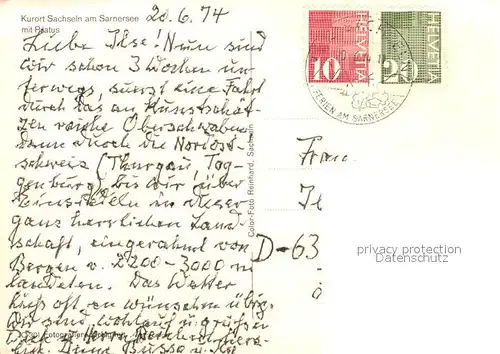 Kurort Sachseln am Sarnersee
mit Pilatus
20.6.74
Liebe Ilse! Nun sind
wir schon 3 Wochen un-
terwegs, zuerst eine Fahrt
durch das an Kunstschät-
zen reiche Oberschwaben
dann durch die Nordost-
schweiz (Thurgau, Tog-
genburg) bis wir über
Einsiedeln in dieser
ganz herrlichen Land
schaft, eingerahmt von
Bergen v. 2200-3000 m
landeten. Das Wetter
ließ oft zu wünschen übrig.
Wir sind wohlauf u. grüßen
Dich u. Herrn
HELVETIA
10
HELVETIA
20
FERIEN AM SARNERSEE
Color-Foto Reinhard, Sachseln
Frau
D-63
privacy protection
Datenschutz